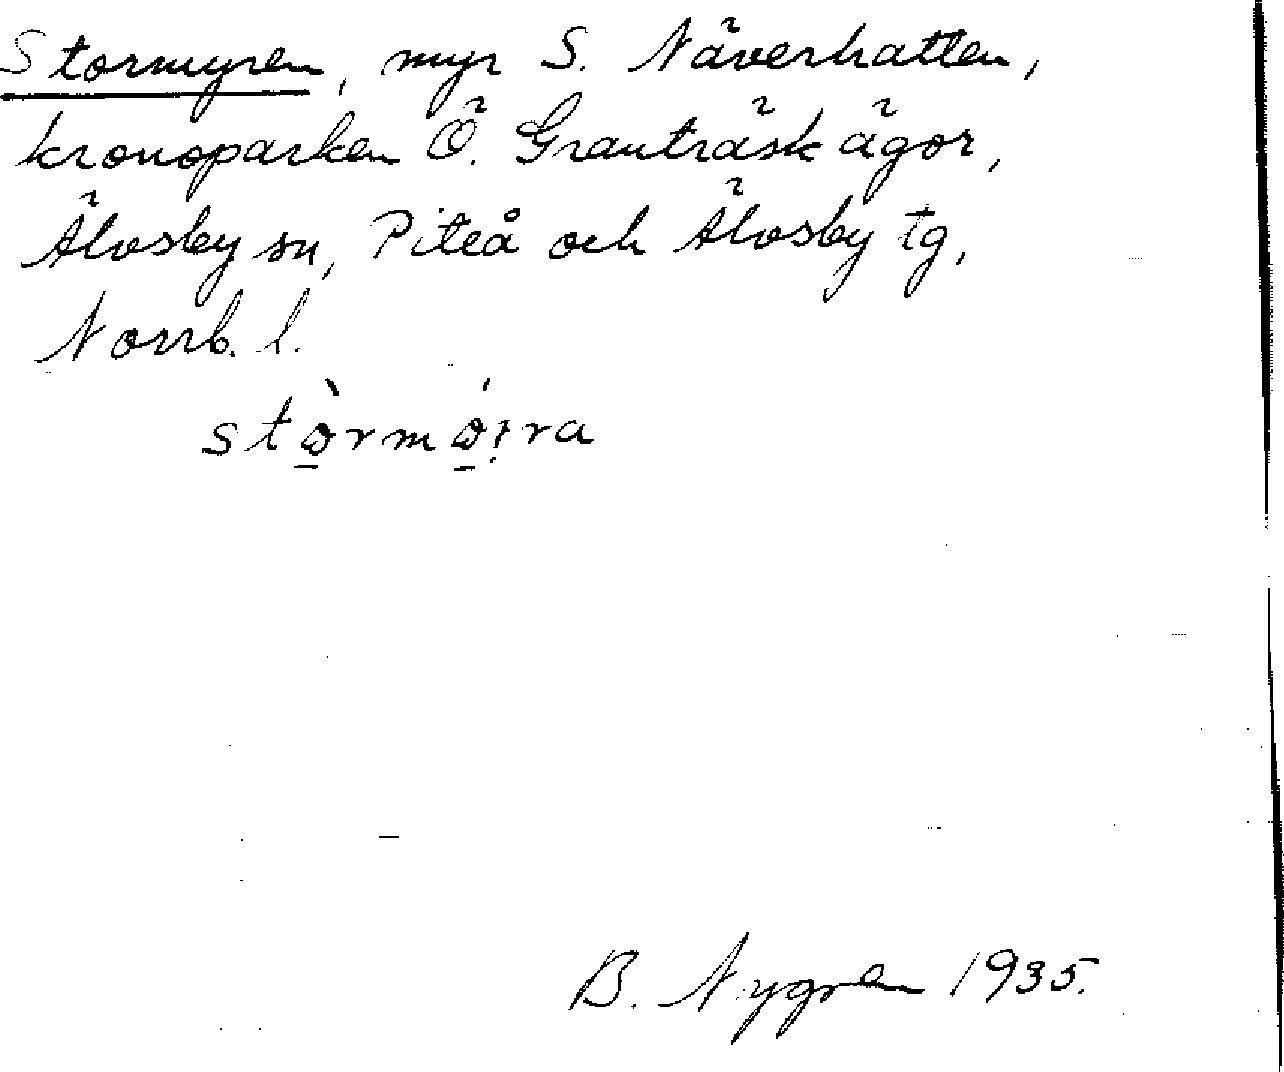 Stormyren, myr S. Näverhatten,
kronoparken Ö. Granträsk ägor,
Älvsby sn, Piteå och Älvsby tg,
Norrb. l.
stòrmó̱ı̣ra
B. Nygren 1935.